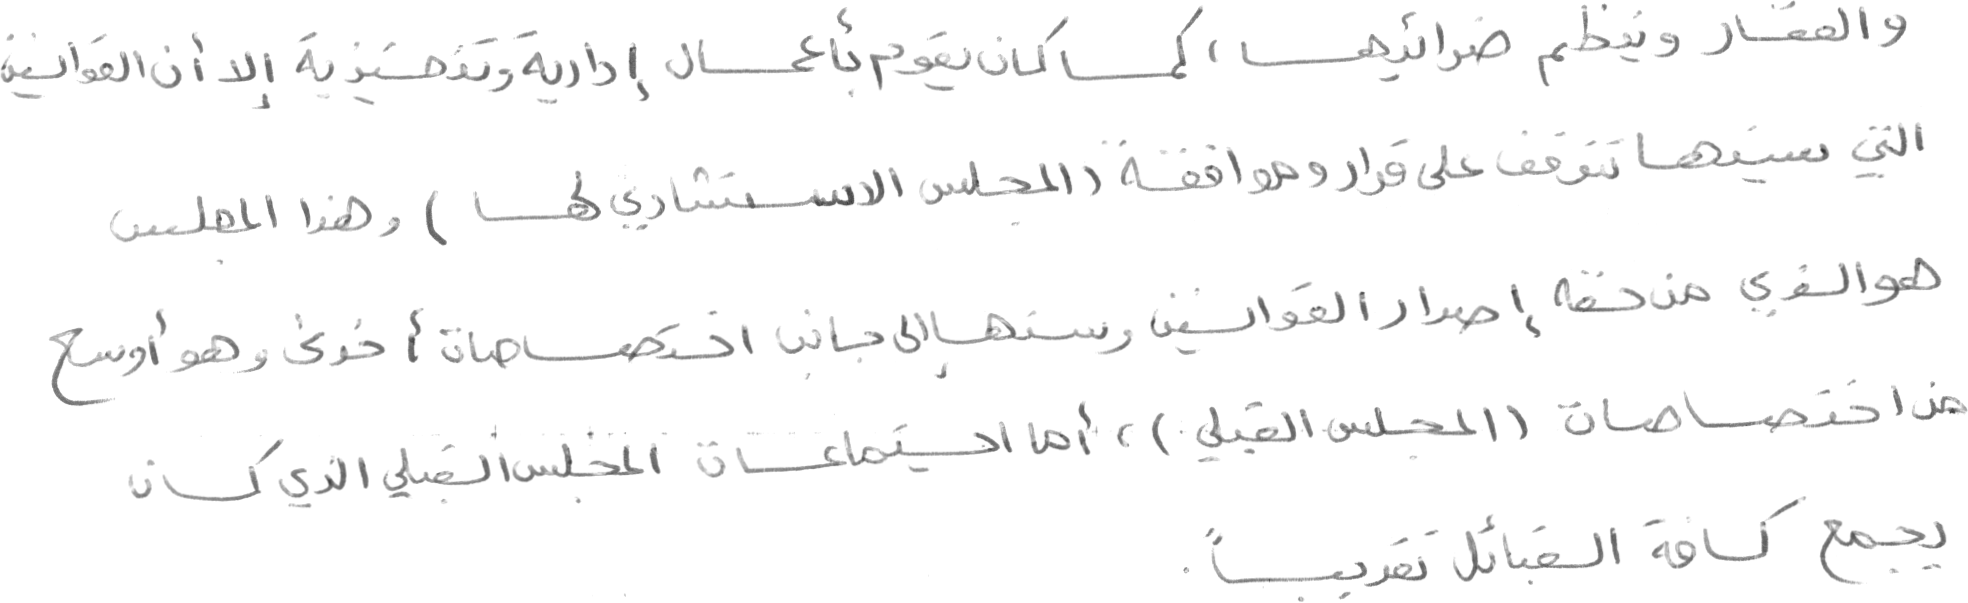 والعقار وينظم ضرائبها ، كما كان يقوم بأعمال إدارية وتنفيذية إلا أن القوانين
التي سينها تتوقف على قرار وموافقة (المجلس الاستشاري لها ) وهذا المجلس
هو الذي من حقه إصدار القوانين وسنها إلى جانب اختصاصات أخرى وهو أوسع
من اختصاصات (المجلس القبلي ) ، أما اجتماعات المجلس القبلي الذي كان
يجمع كافة القبائل تقريباً .